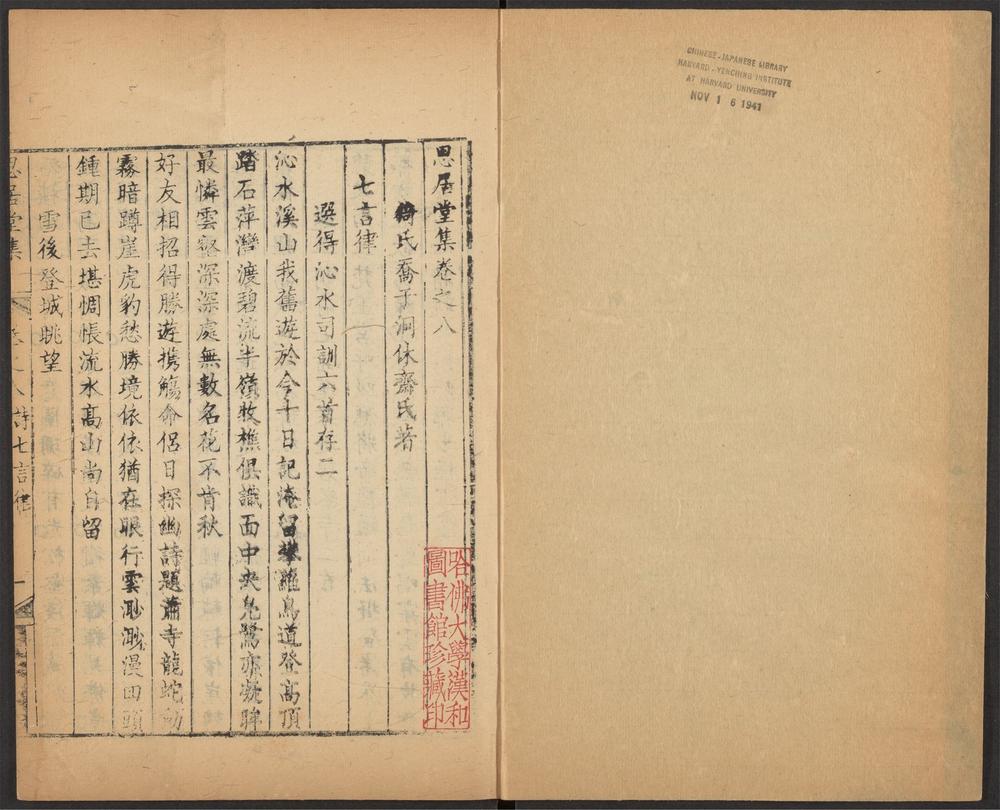 CHINESE-JAPANESE LIBRARY
HARVARD-YENCHING INSTITUTE
AT HARVARD UNIVERSITY
NOV 1 6 1941
思居堂集卷之八
猗氏喬于洞休齋氏著
七言律
選得沁水司訓六首存二
沁水溪山我舊遊於今十日記淹留攀蘿鳥道登高頂
踏石萍灣渡碧流半嶺牧樵俱識面中央鳧鷺亦凝眸
最憐雲壑深深處無數名花不肯秋
好友相招得勝遊携觴命侶日探幽詩題蕭寺龍蛇動
霧暗蹲崖虎豹愁勝境依依猶在眼行雲渺渺漫回頭
鍾期已去堪惆悵流水高山尚自留
雪後登城眺望
思居堂集
卷之八詩七言律
一
哈佛大學漢和
圖書館珍藏印